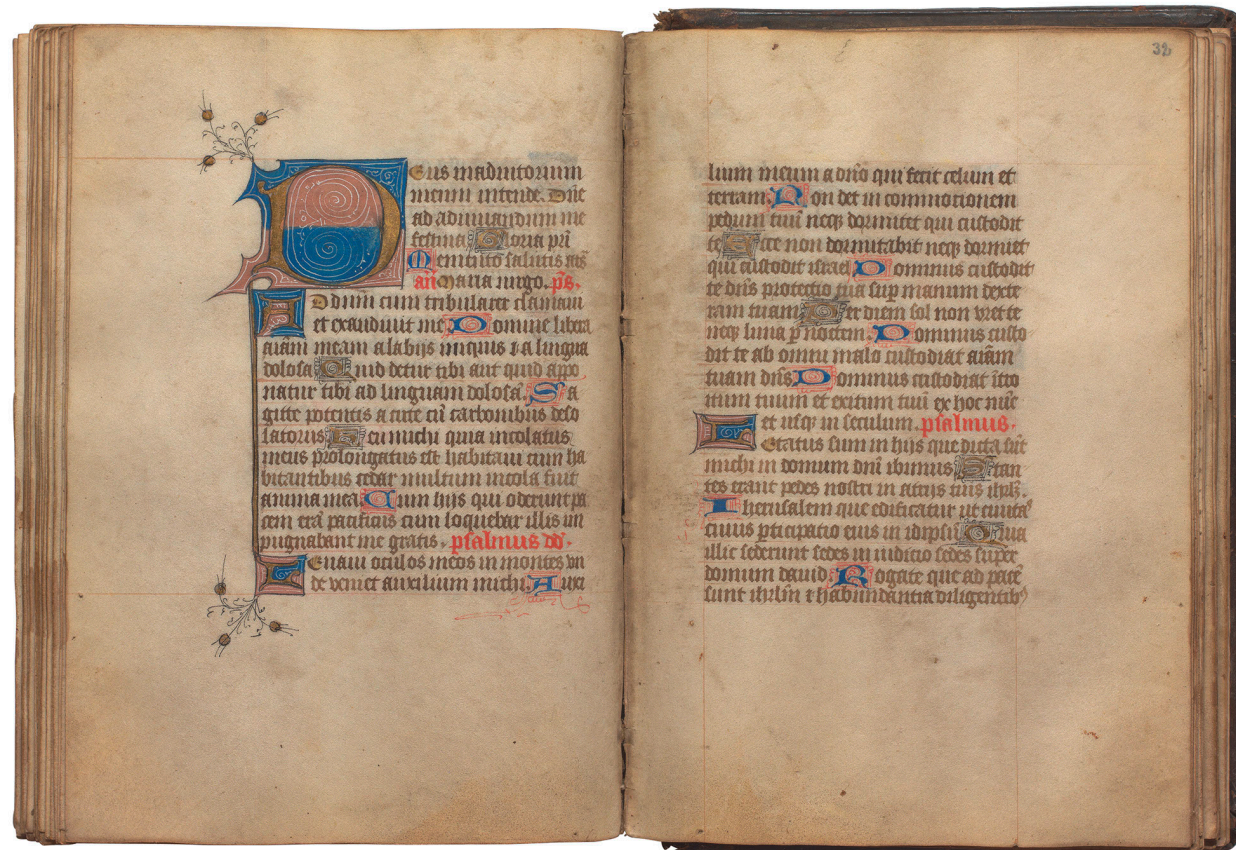 Deus in adiutorium
meum intende. Dñe
ad adiuuandum me
festina Gloria pr̃i
Memento salutis
añ Maria uirgo. p̃s.
Ad dñm cum tribularer clamaui
et exaudiuit me Domine libera
aiãm meam a labijs iniquis ⁊ a lingua
dolosa Quid detur tibi aut quid appo
natur tibi ad linguam dolosã. Sa
gitte potentis acute cũ carbonibus deso
latorijs Heu michi quia incolatus
meus prolongatus est habitaui cum ha
bitantibus cedar multum incola fuit
anima mea Cum hijs qui oderunt pa
cem erã pacificus cum loquebar illis im
pugnabant me gratis. psalmus dd.
Leuaui oculos meos in montes vn
de veniet auxilium michi. Auxi
32
lium meum a dño qui fecit celum et
terram. Non det in commotionem
pedum tuũ neqꝫ dormitet qui custodit
te Ecce non dormitabit neqꝫ dormiet
qui custodit israel Dominus custodit
te dñs protectio tua sup manum dexte
ram tuam Per diem sol non vret te
neqꝫ luna p noctem. Dominus custo
dit te ab omni malo custodiat aiãm
tuam dñs Dominus custodiat ĩtro
itum tuum et exitum tuũ ex hoc nũc
et usqꝫ in seculum. psalmus.
Letatus sum in hijs que dicta sũt
michi in domum dñi ibimus Stan
tes erant pedes nostri in atrijs tuis ihrlꝫ.
Iherusalem que edificatur ut ciuitaꝰ
cuius pticipatio eius in idipsũ Quia
illic sederunt sedes in iudicio sedes super
domum dauid. Rogate que ad pacẽ
sunt ihrlm̃ ⁊ habundantia diligentibꝰ